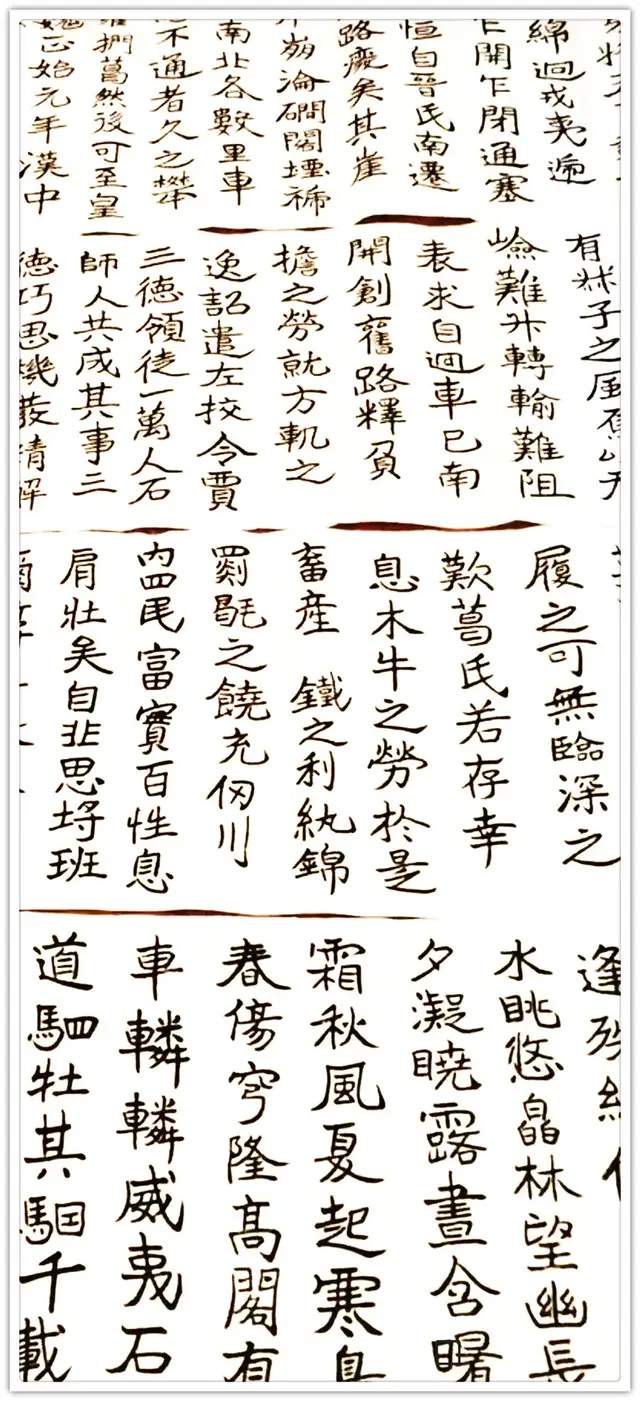 綿迴戎夷遞
乍開乍閉通塞
恒自晉氏南遷
路廢矣其崖
崩淪磵閣堙褫
南北各數里車
不通者久之攀
捫葛然後可至皇
魏正始元年漢中
子之風焉以天
嶮難升轉輸難阻
表求自迴車已南
開創舊路釋負
擔之勞就方軌之
逸詔遣左挍令賈
三德領徒一萬人石
師人共成其事三
德巧思機發精解
履之可無臨深之
歎葛氏若存幸
息木牛之勞於是
畜産 鐵之利紈錦
罽毼之饒充仞川
內四民富實百性息
肩壯矣自非思埒班
逢殊
水眺悠皛林望幽長
夕凝曉露晝含曙
霜秋風夏起寒鳥
春傷穹隆高閣有
車轔轔威夷石
道駟牡其駰千載